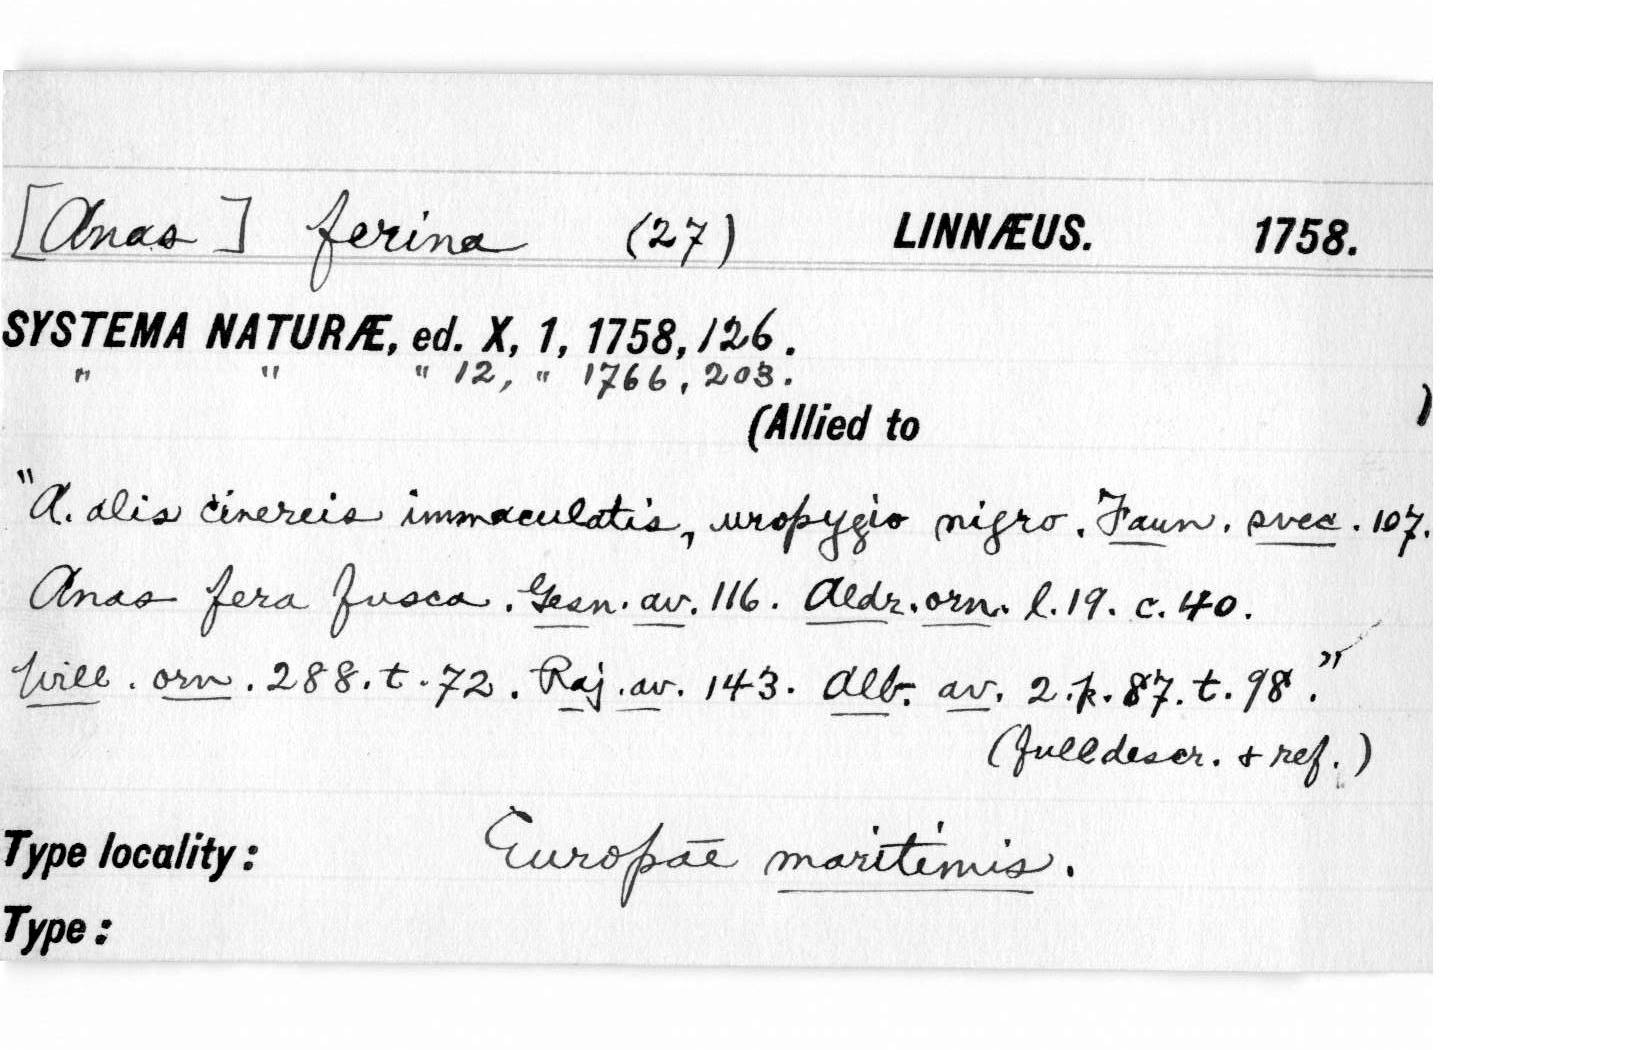 [Anas] ferina (27) LINNÆUS. 1758.
SYSTEMA NATURÆ, ed. X, 1, 1758, 126.
" " " 12, " 1766, 203.
(Allied to )
"A. alis cinereis immaculatis, uropygio nigro. Faun. svec. 107.
Anas fera fusca. Gesn. av. 116. Aldr. orn. l. 19. c. 40.
Will. orn. 288. t. 72. Raj. av. 143. Alb. av. 2. p. 87. t. 98."
(full descr. + ref.)
Type locality: Europae maritimis.
Type: